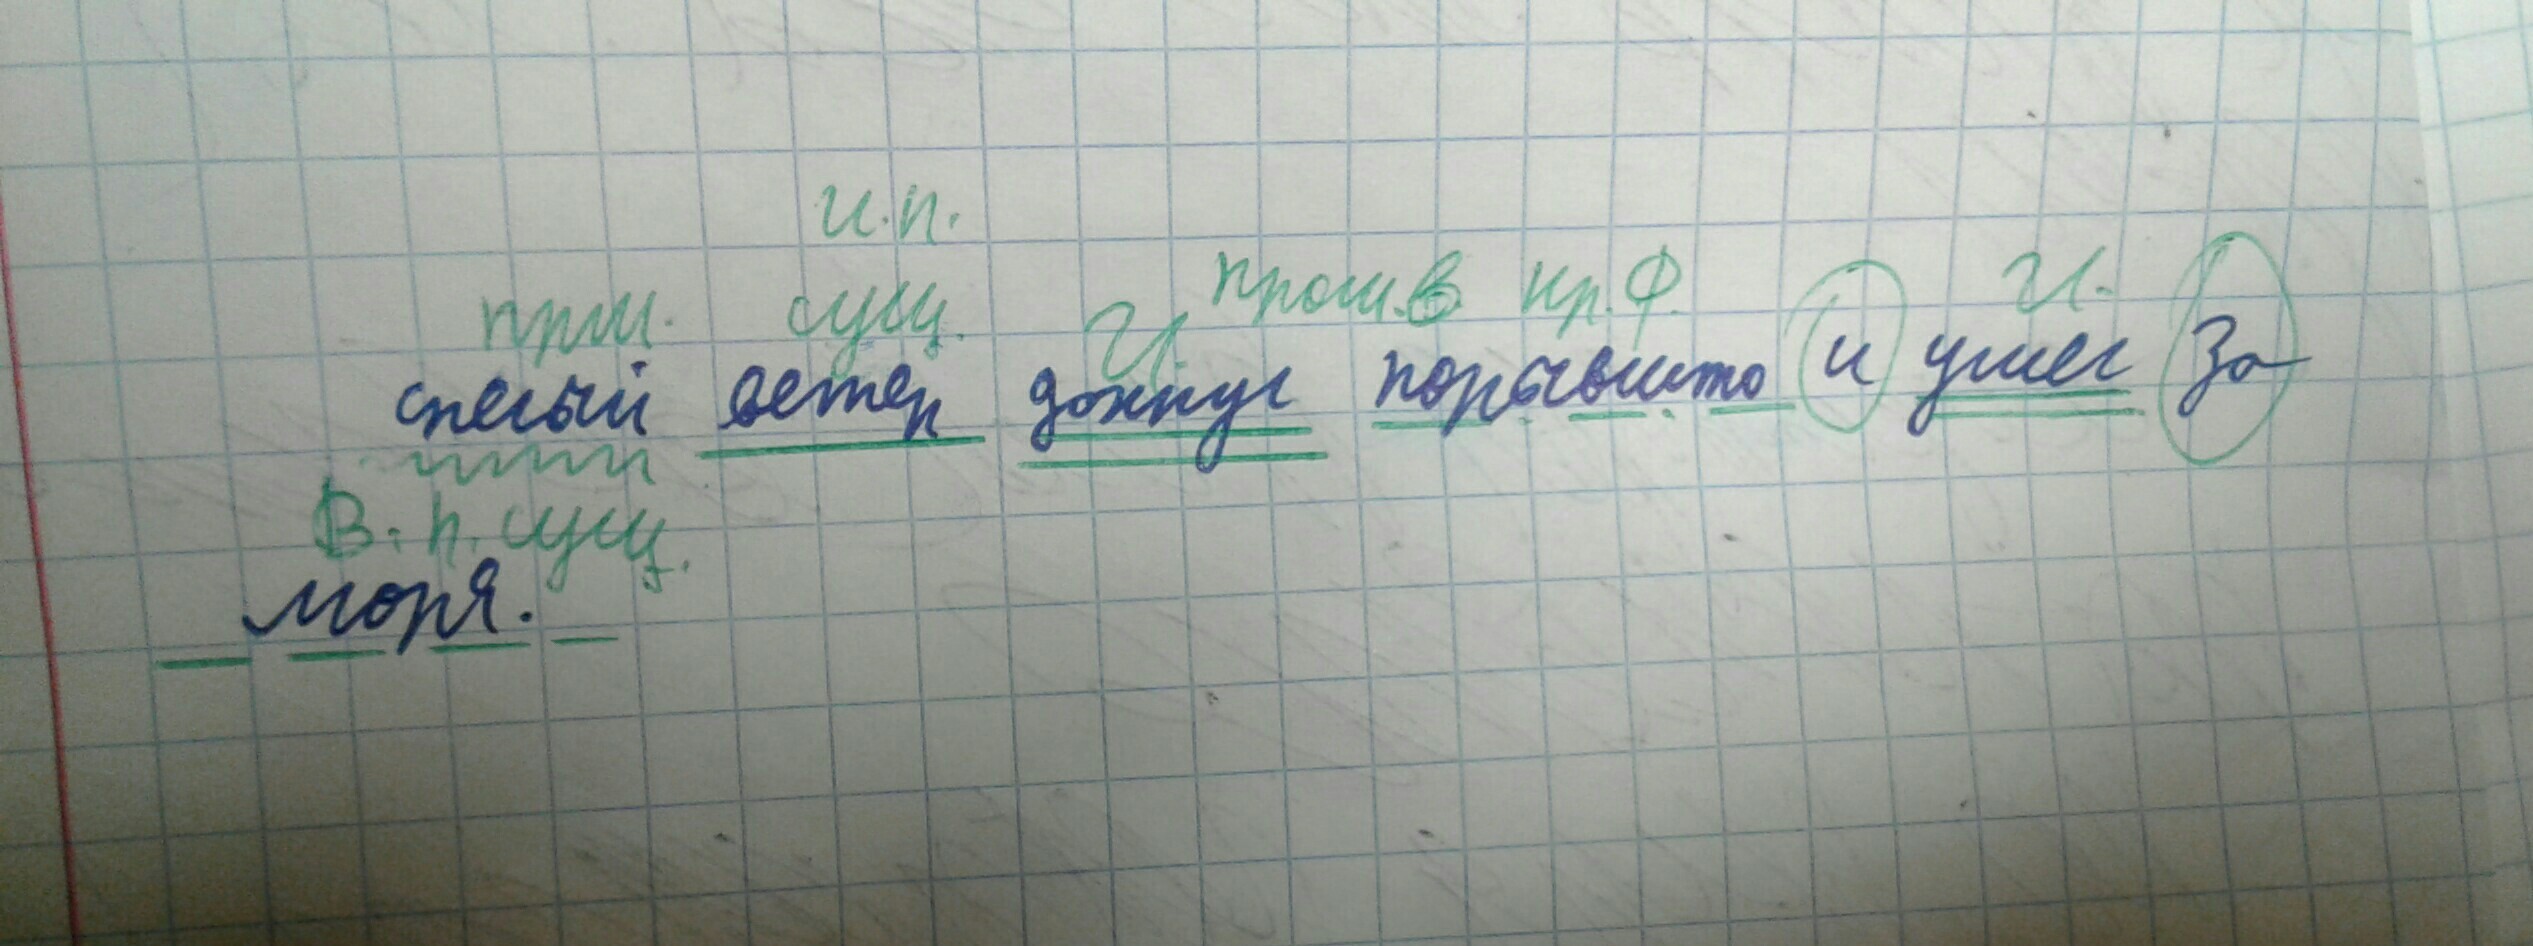 и.п.
прил. сущ. прош.в кр.ф.
спелый ветер дохнул порывисто и ушел за
В.п. сущ.
моря.